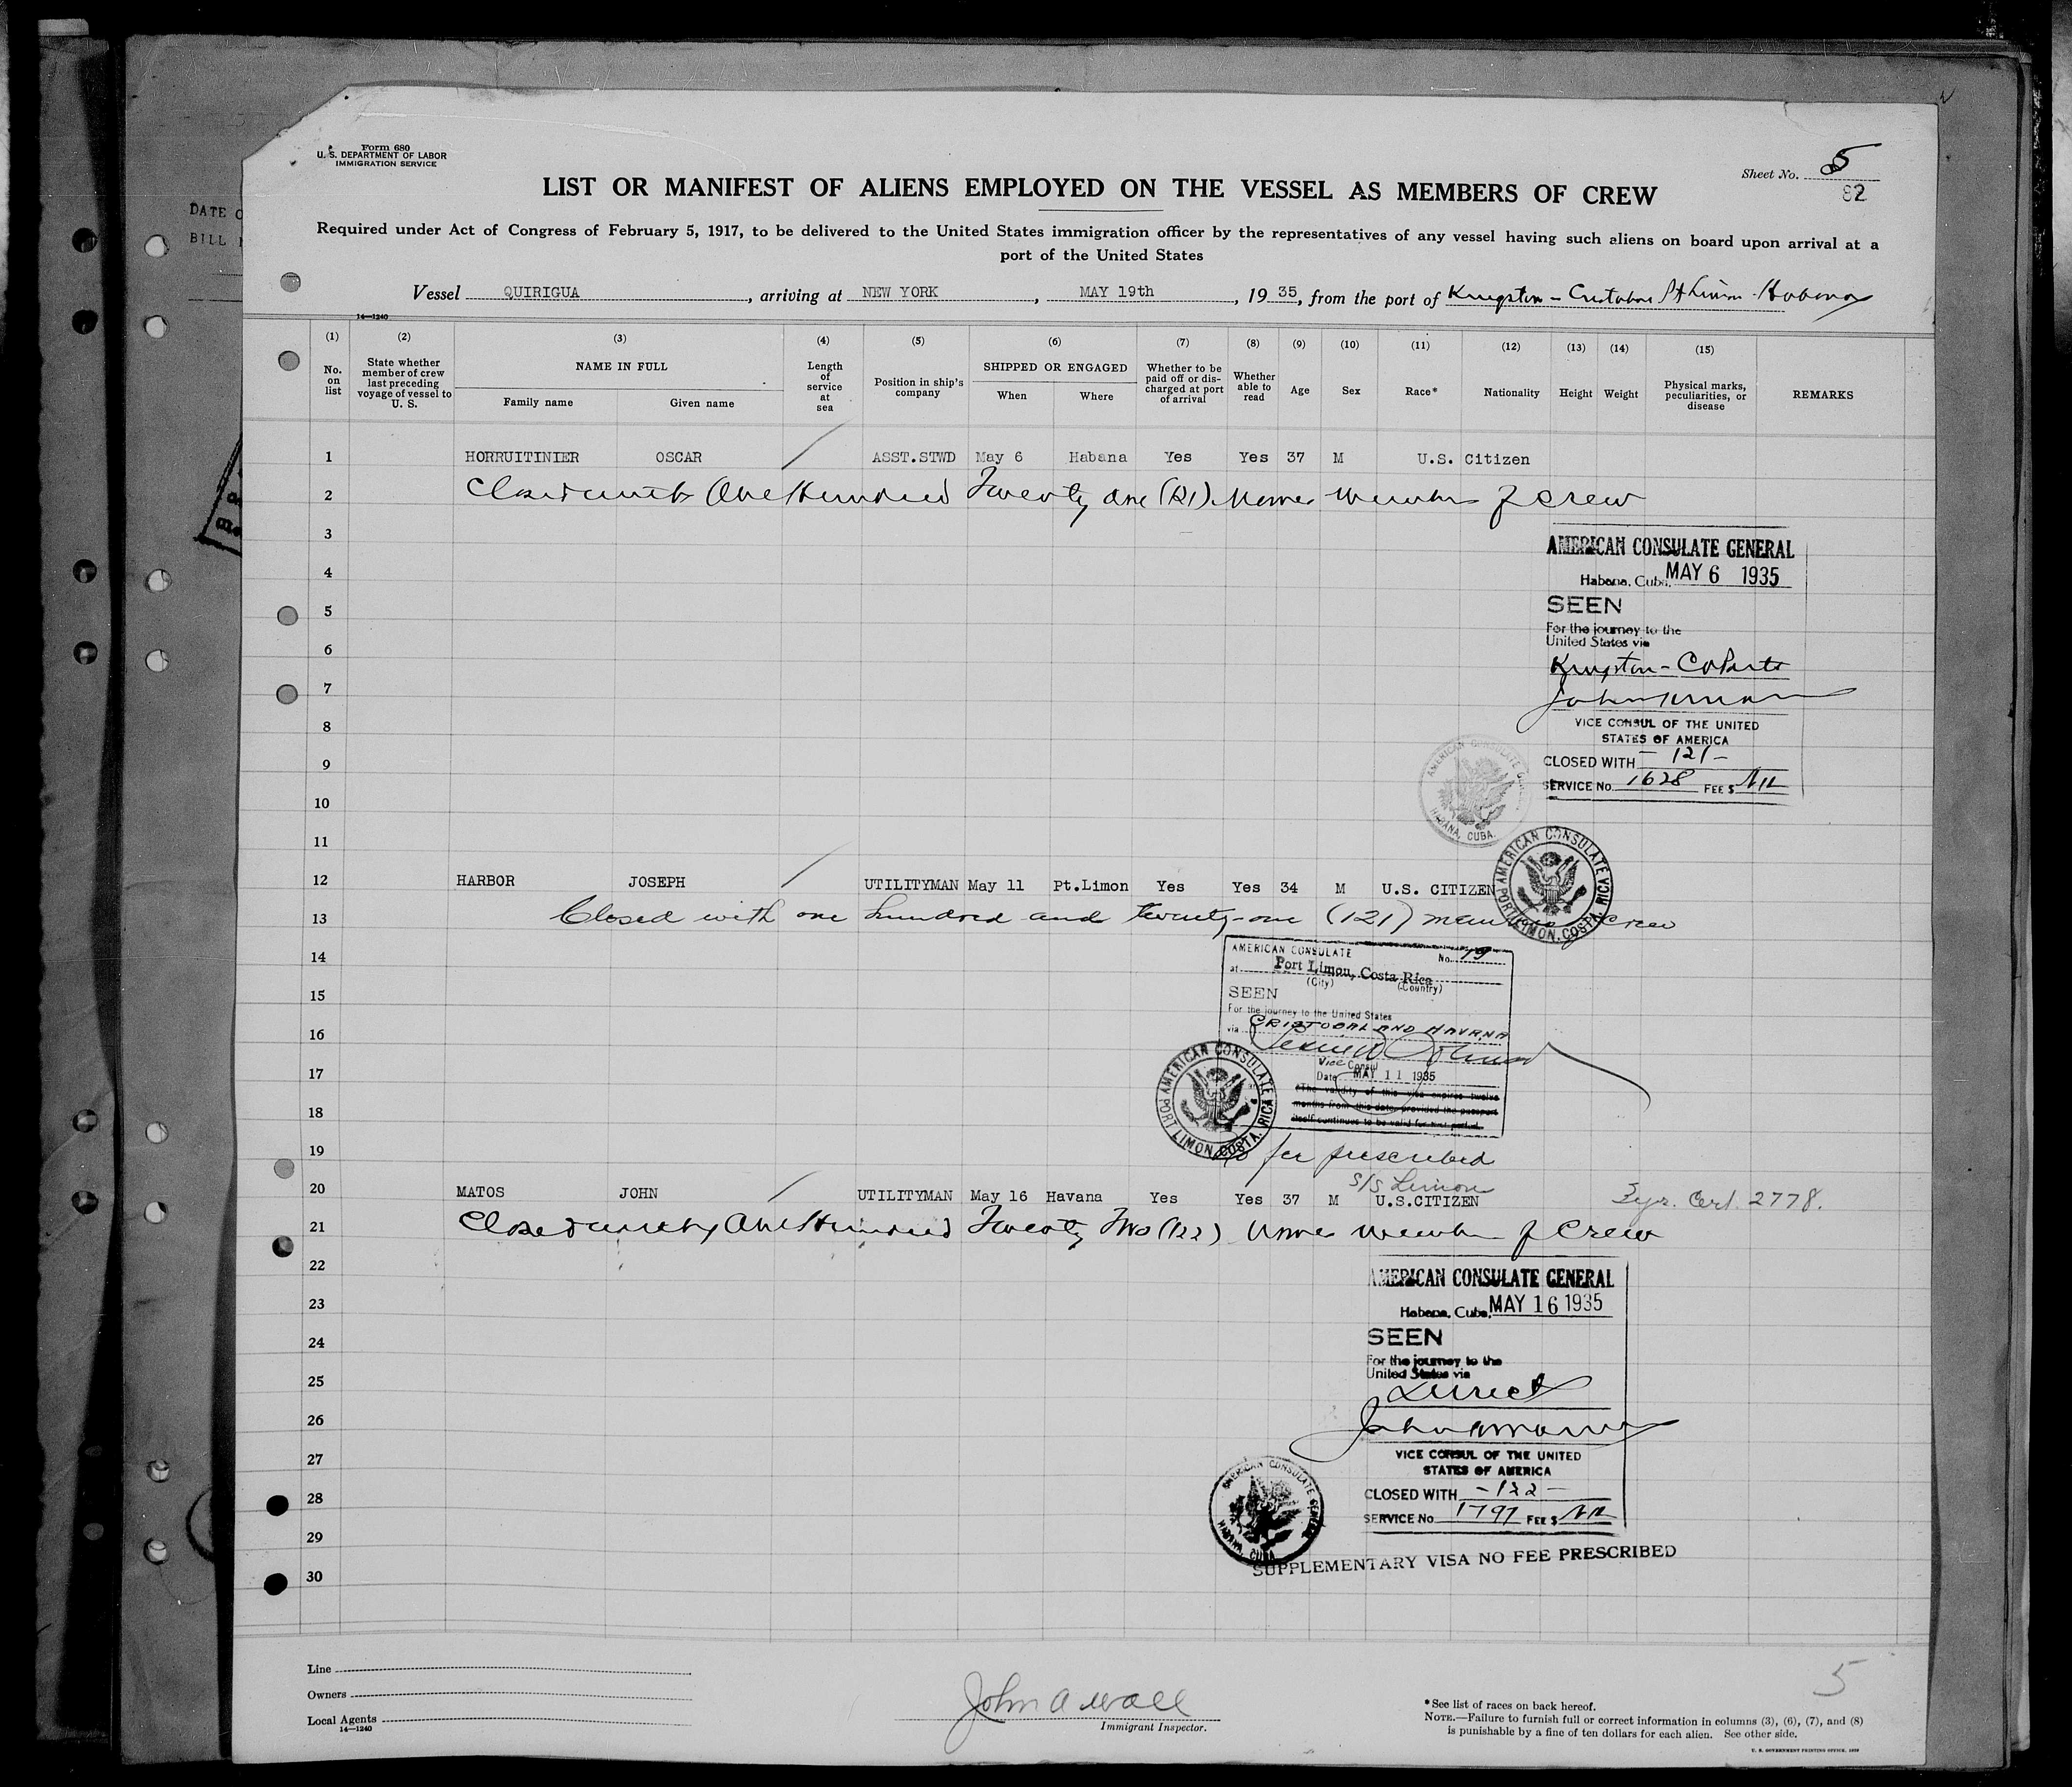 DATE O
BILL
Form 680
U. S. DEPARTMENT OF LABOR
IMMIGRATION SERVICE
Sheet No. 5
82
LIST OR MANIFEST OF ALIENS EMPLOYED ON THE VESSEL AS MEMBERS OF CREW
Required under Act of Congress of February 5, 1917, to be delivered to the United States immigration officer by the representatives of any vessel having such aliens on board upon arrival at a
port of the United States
Vessel QUIRIGUA, arriving at NEW YORK, MAY 19th, 19 35, from the port of Kingston - Cristobal Pt Limon - Habana
14—1240
(1) (2) (3) (4) (5) (6) (7) (8) (9) (10) (11) (12) (13) (14) (15)
No. on list
State whether member of crew last preceding voyage of vessel to U. S.
NAME IN FULL
Family name Given name
Length of service at sea
Position in ship's company
SHIPPED OR ENGAGED
When Where
Whether to be paid off or discharged at port of arrival
Whether able to read
Age Sex Race* Nationality Height Weight
Physical marks, peculiarities, or disease
REMARKS
1 HORRUITINIER OSCAR ASST.STWD May 6 Habana Yes Yes 37 M U.S. Citizen
2 Closed with One Hundred Twenty One (121) Names Members of Crew
3
AMERICAN CONSULATE GENERAL
4
Habana, Cuba, MAY 6 1935
5
SEEN
For the journey to the
United States via
6
Kingston - C
7
8
VICE CONSUL OF THE UNITED
STATES OF AMERICA
9
CLOSED WITH - 121 -
SERVICE No. 1628 FEE $ Nil
AMERICAN CONSULATE G
HABANA, CUBA.
10
11
AMERICAN CONSULATE
PORT LIMON, COSTA RICA
12 HARBOR JOSEPH UTILITYMAN May 11 Pt.Limon Yes Yes 34 M U.S. CITIZEN
13 Closed with one hundred and twenty-one (121) crew
14
AMERICAN CONSULATE No. 19
at Port Limon, Costa Rica
(City) (Country)
15
SEEN
For the journey to the United States
16
via CRISTOBAL AND HAVANA
Vice Consul
17
Date MAY 11 1935
The validity of this visa expires twelve
months from this date provided the passport
itself continues to be valid for that period.
AMERICAN CONSULATE
PORT LIMON, COSTA RICA
18
19
No fee prescribed
S/S Limon
20 MATOS JOHN UTILITYMAN May 16 Havana Yes Yes 37 M U.S.CITIZEN Cert. 2778.
21 Closed with One Hundred Twenty Two (122) Names Members of Crew
22
AMERICAN CONSULATE GENERAL
23
Habana, Cuba, MAY 16 1935
24
SEEN
For the journey to the
United States via
25
Direct
26
27
VICE CONSUL OF THE UNITED
STATES OF AMERICA
28
CLOSED WITH - 122 -
SERVICE No. 1797 FEE $ Nil
AMERICAN CONSULATE GENERAL
HABANA, CUBA
29
SUPPLEMENTARY VISA NO FEE PRESCRIBED
30
Line
Owners
Local Agents
14—1240
John A Wall
Immigrant Inspector.
5
*See list of races on back hereof.
NOTE.—Failure to furnish full or correct information in columns (3), (6), (7), and (8)
is punishable by a fine of ten dollars for each alien. See other side.
U. S. GOVERNMENT PRINTING OFFICE